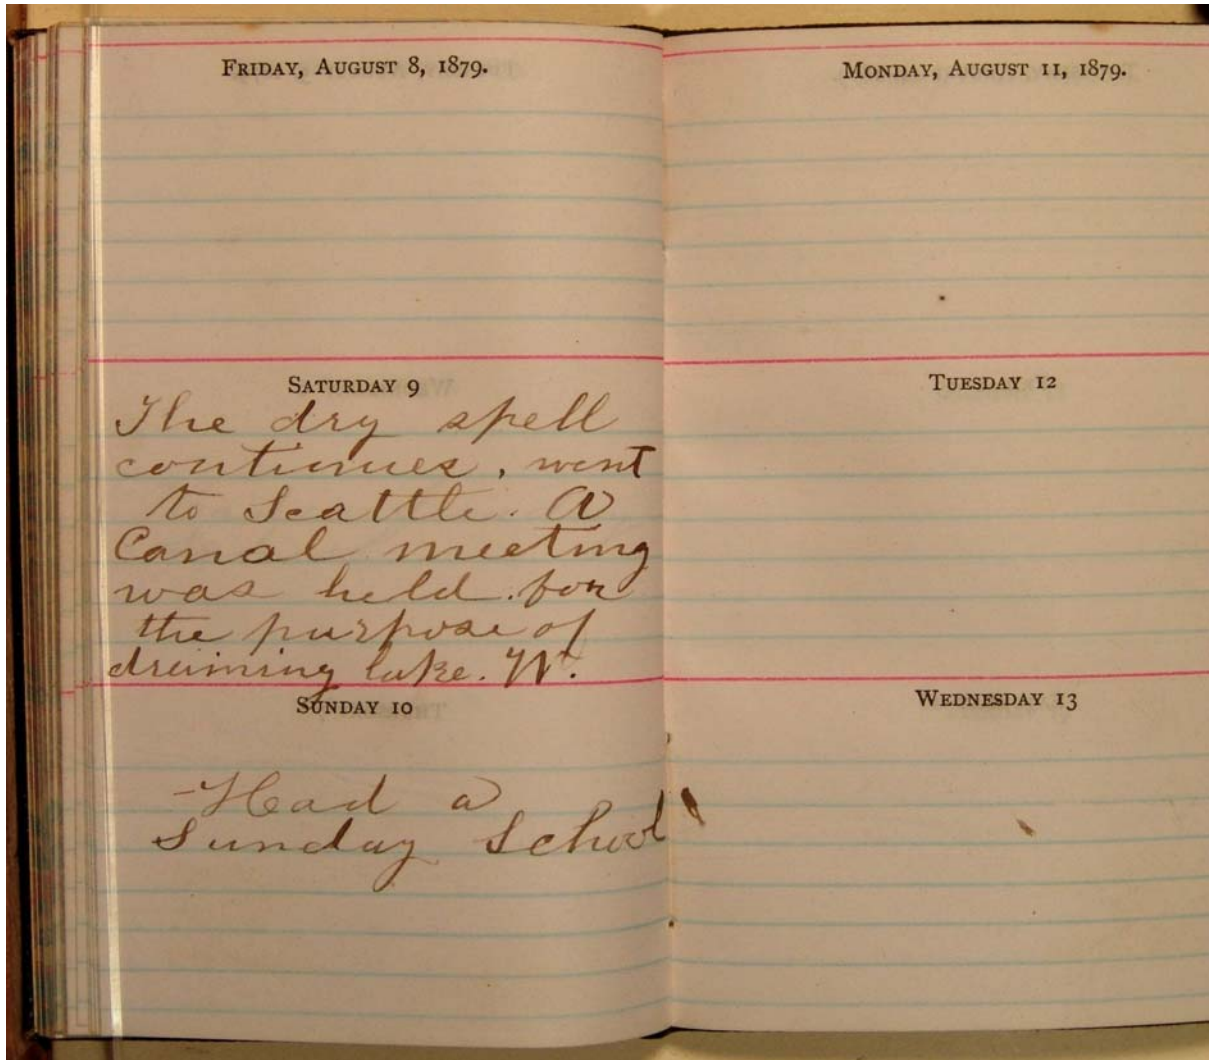 FRIDAY, AUGUST 8, 1879.
SATURDAY 9
The dry spell
continues, went
to Seattle. A
Canal meeting
was held for
the purpose of
draining lake. W.
SUNDAY 10
Had a
Sunday School
MONDAY, AUGUST 11, 1879.
TUESDAY 12
WEDNESDAY 13